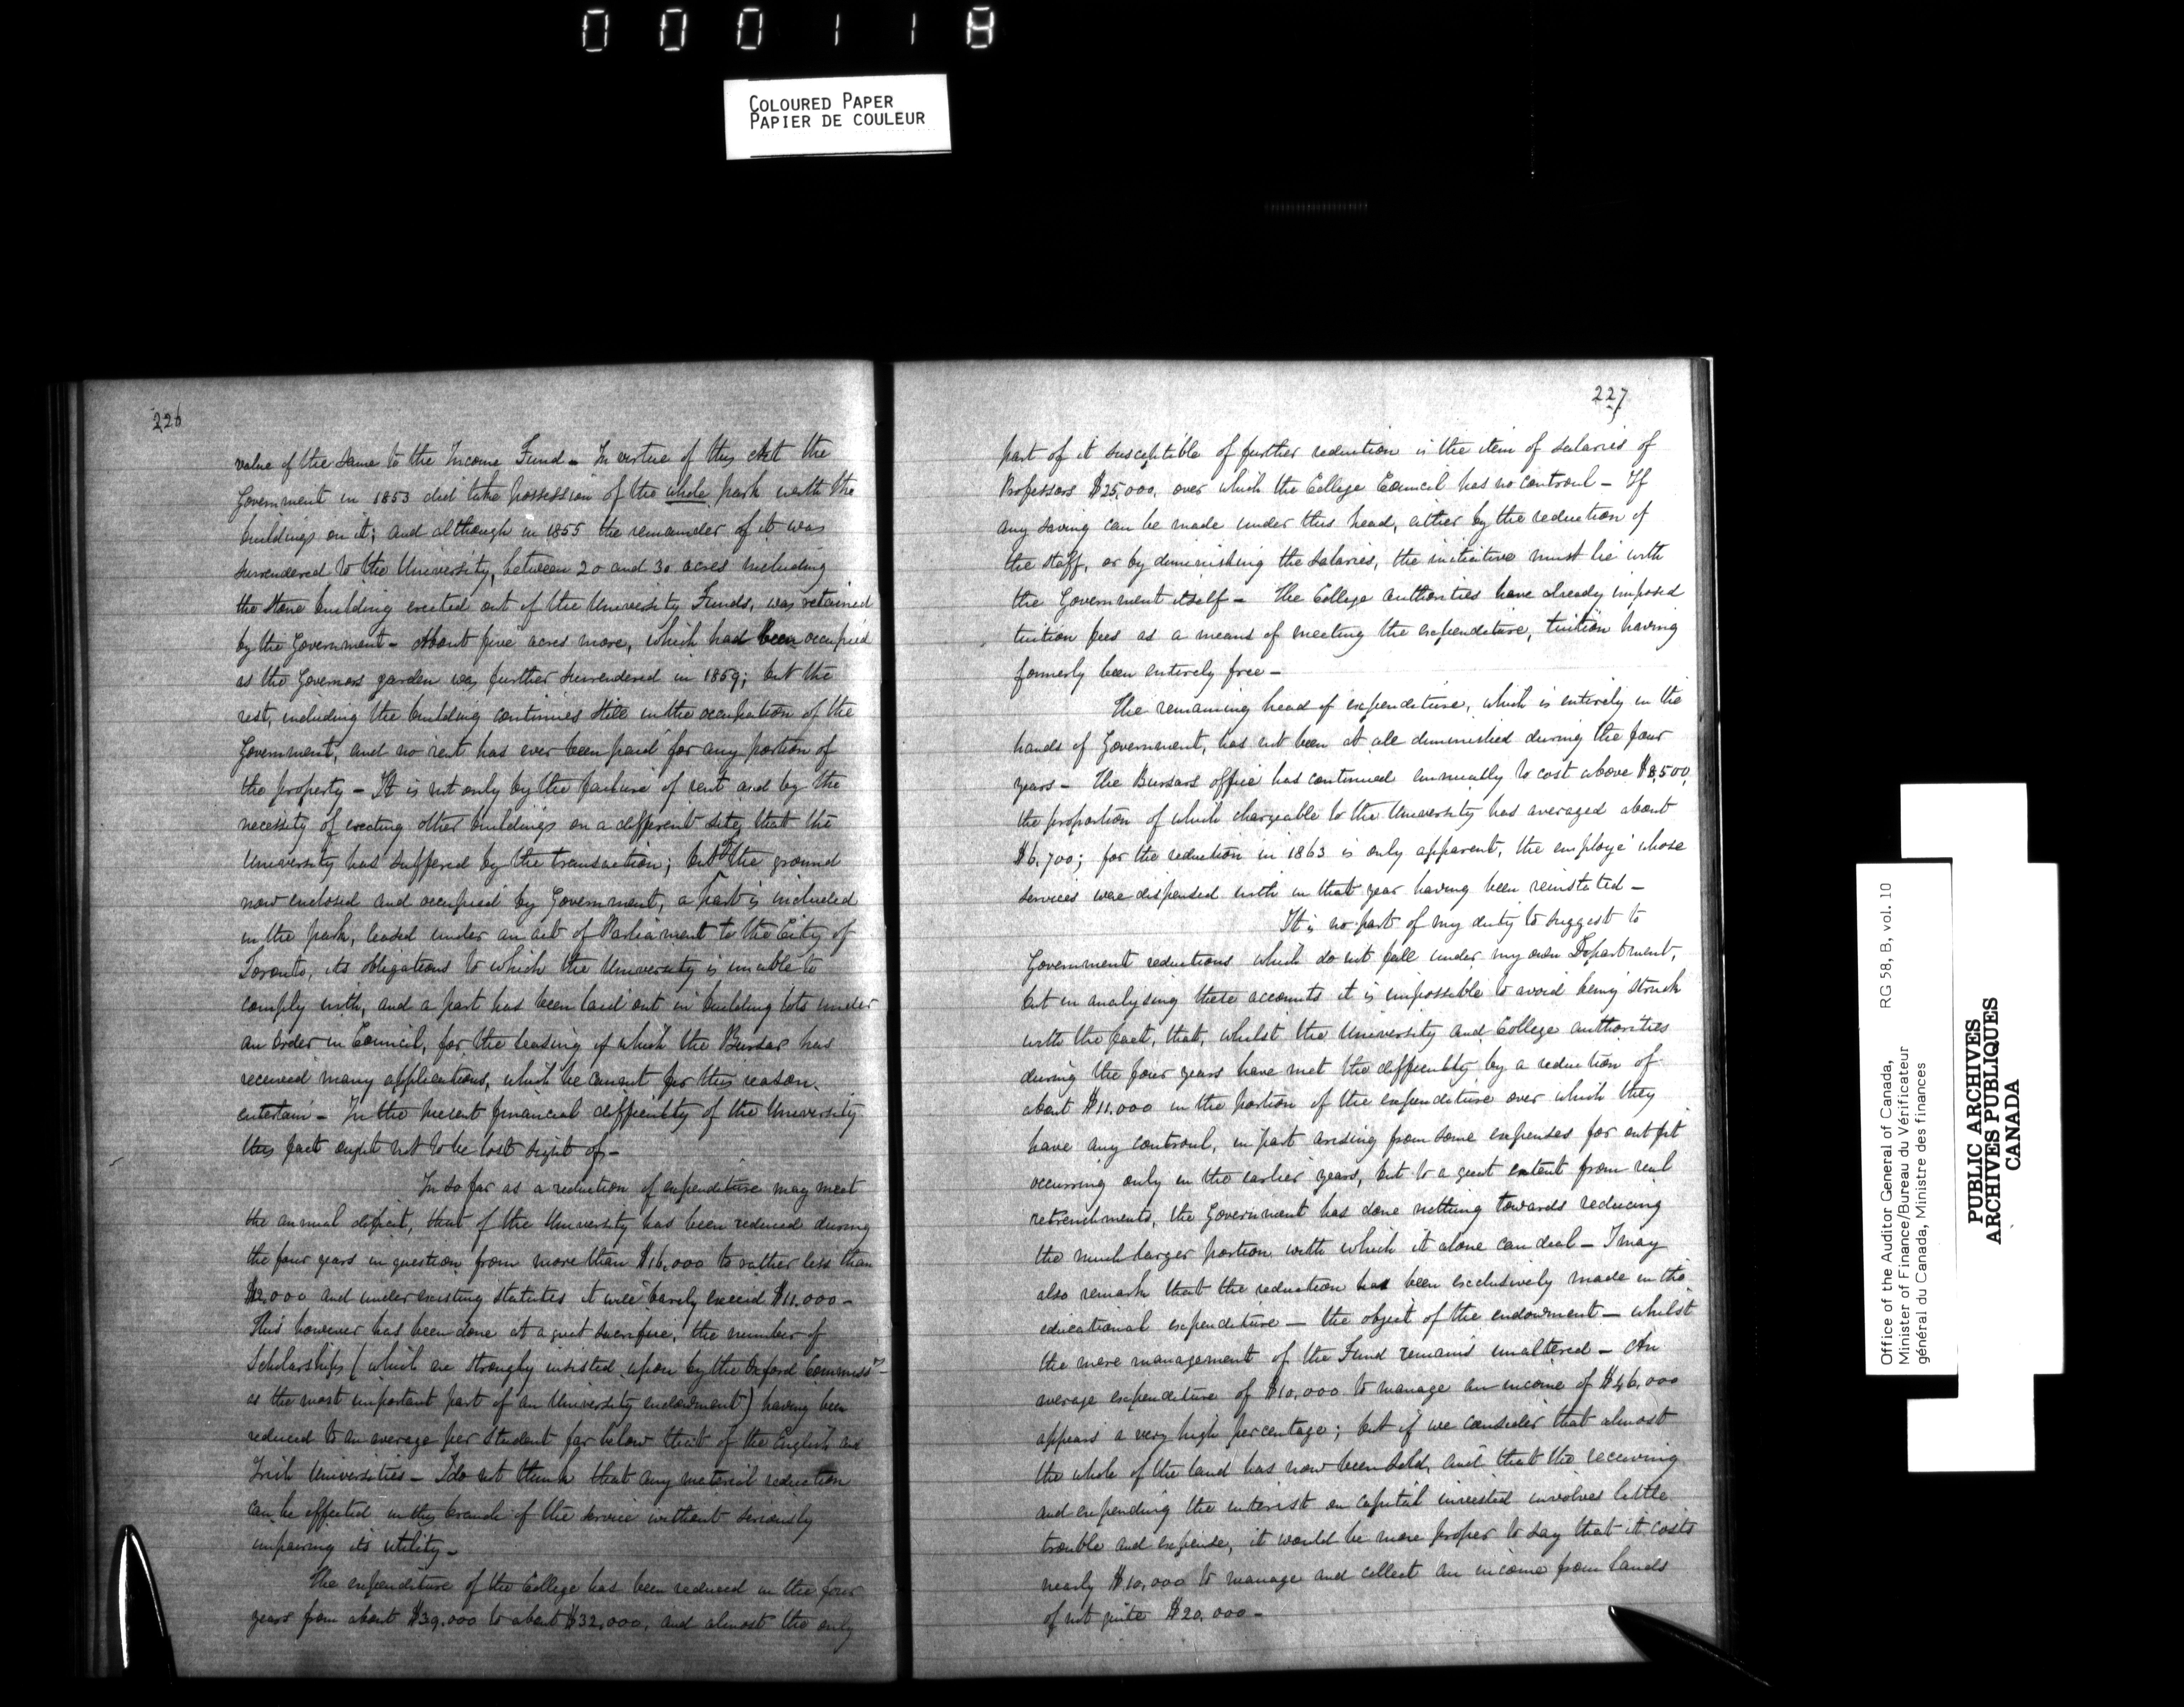 000118
COLOURED PAPER
PAPIER DE COULEUR
226
value of the same to the Income Fund - In virtue of this Act the
Government in 1853 did take possession of the whole park with the
buildings on it; and although in 1855 the remainder of it was
surrendered to the University, between 20 and 30 acres including
the stone building erected out of the University Funds, was retained
by the Government - About five acres more, which had been occupied
as the Governors garden was further surrendered in 1859; but the
rest, including the building continues still in the occupation of the
Government, and no rent has ever been paid for any portion of
the property - It is not only by the failure of rent and by the
necessity of erecting other buildings on a different site, that the
University has suffered by the transaction; but of the ground
now enclosed and occupied by Government, a part is included
in the park, leased under an act of Parliament to the City of
Toronto, its obligations to which the University is unable to
comply with, and a part has been laid out in building lots under
an Order in Council, for the leasing of which the Bursar has
received many applications, which he cannot for this reason
entertain - In the present financial difficulty of the University
this fact ought not to be lost sight of -
In so far as a reduction of expenditure may meet
the annual deficit, that of the University has been reduced during
the four years in question from more than $16,000 to rather less than
$12,000 and under existing statutes it will barely exceed $11.000 -
This however has been done at a great sacrifice, the number of
Scholarships (which are strongly insisted upon by the Oxford Commissrs
as the most important part of an University endowment) having been
reduced to an average per Student far below that of the English and
Irish Universities - I do not think that any material reduction
can be effected in this branch of the service without seriously
impairing its utility -
The expenditure of the College has been reduced in the four
years from about $39,000 to about $32,000, and almost the only
227
part of it susceptible of further reduction is the item of salaries of
Professors $25,000, over which the College Council has no controul - If
any saving can be made under this head, either by the reduction of
the staff, or by diminishing the salaries, the initiative must lie with
the Government itself - The College authorities have already imposed
tuition fees as a means of meeting the expenditure, tuition having
formerly been entirely free -
The remaining head of expenditure, which is entirely in the
hands of Government, has not been at all diminished during the four
years - The Bursars office has continued annually to cost above $8,500,
the proportion of which chargeable to the University has averaged about
$6,700; for the reduction in 1863 is only apparent, the employé whose
services were dispensed with in that year having been reinstated -
It is no part of my duty to suggest to
Government reductions which do not fall under my own Department,
but in analysing these accounts it is impossible to avoid being struck
with the fact, that, whilst the University and College authorities
during the four years have met the difficulty by a reduction of
about $11.000 in the portion of the expenditure over which they
have any controul, in part arising from some expenses for outfit
occurring only in the earlier years, but to a great extent from real
retrenchments, the Government has done nothing towards reducing
the much larger portion with which it alone can deal - I may
also remark that the reduction has been exclusively made in the
educational expenditure - the object of the endowment - whilst
the mere management of the Fund remains unaltered - An
average expenditure of $10,000 to manage an income of $46,000
appears a very high percentage; but if we consider that almost
the whole of the land has now been sold, and that the receiving
and expending the interest on capital invested involves little
trouble and expense, it would be more proper to say that it costs
nearly $10,000 to manage and collect an income from lands
of not quite $20,000 -
Office of the Auditor General of Canada, RG 58, B, vol. 10
Minister of Finance/Bureau du Vérificateur
général du Canada, Ministre des finances
PUBLIC ARCHIVES
ARCHIVES PUBLIQUES
CANADA